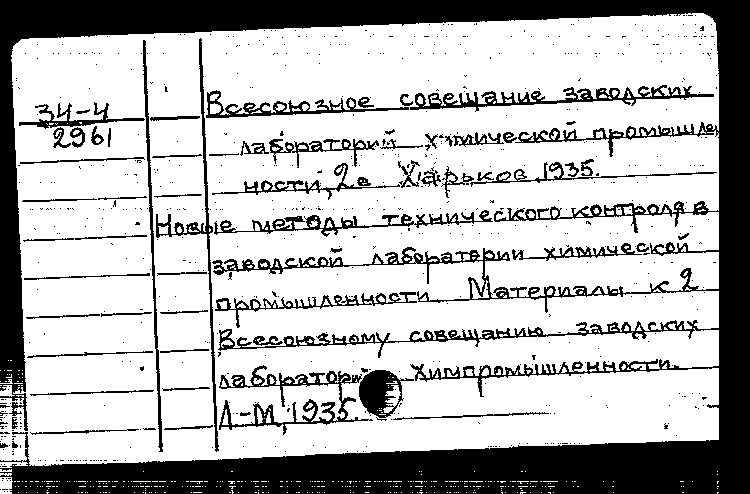 34-4
2961
Всесоюзное совещание заводских
лабораторий химической промышлен
ности, 2е Харьков, 1935.
Новые методы технического контроля в
заводской лаборатории химической
промышленности. Материалы к 2
Всесоюзному совещанию заводских
лабораторий химпромышленности.
Л-М, 1935.